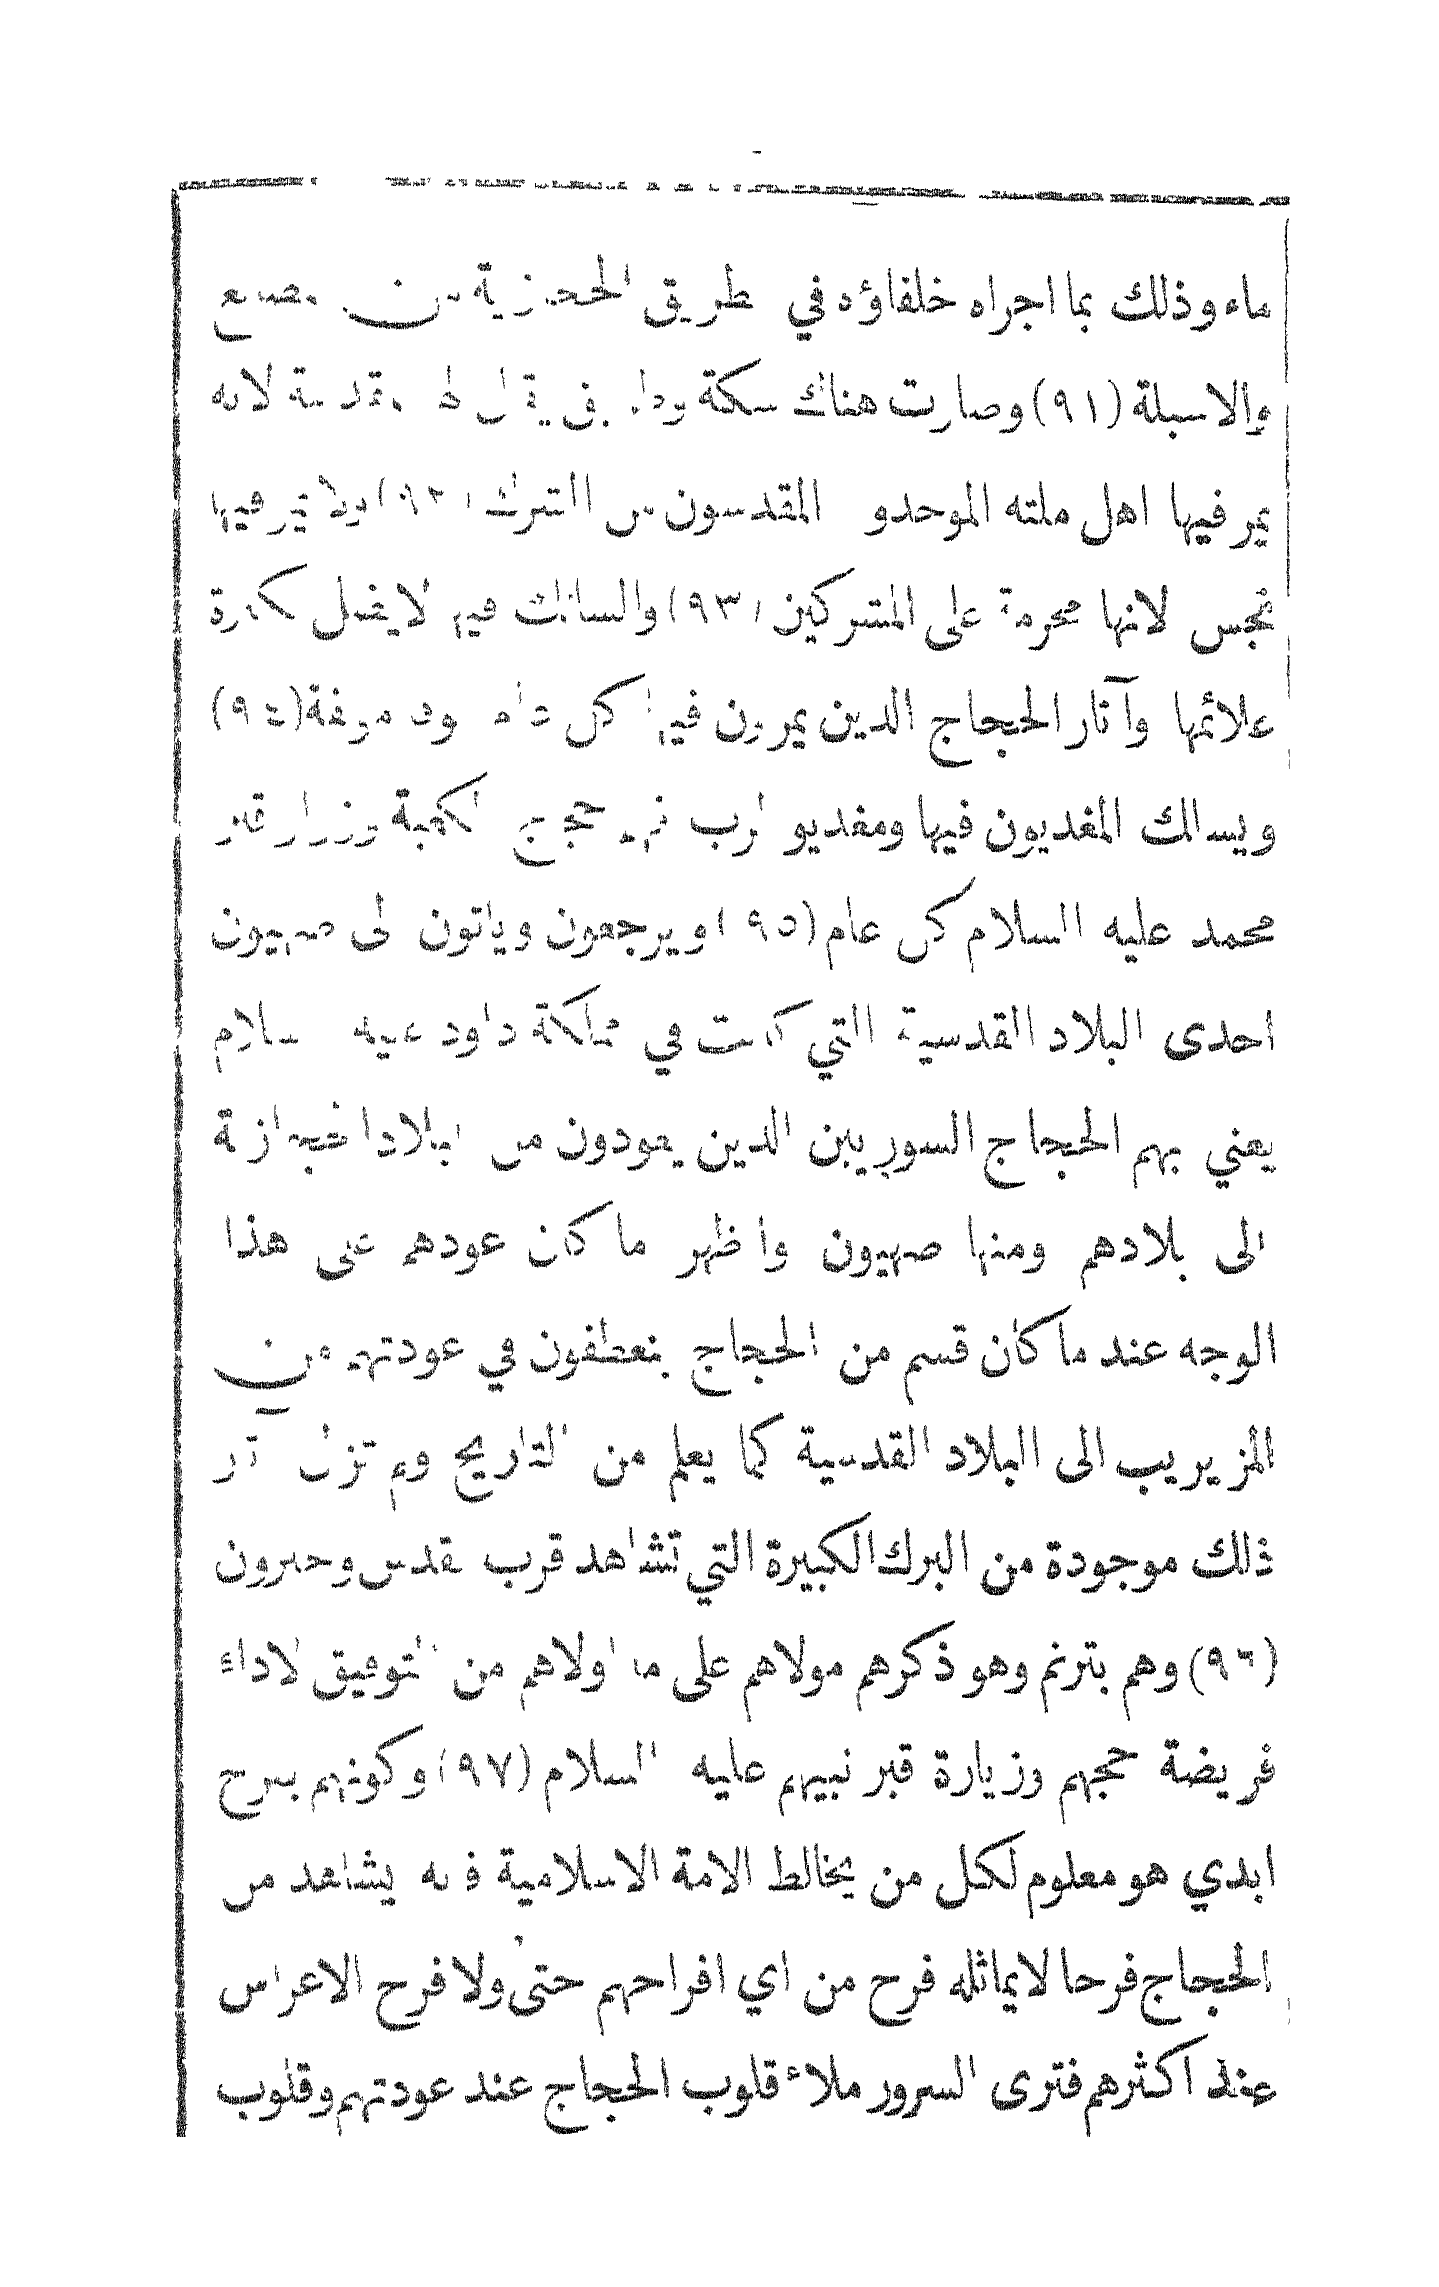 ماء وذلك بما اجراه خلفاؤه في طريق الحجازية من مصانع
والاسبلة (٩١) وصارت هناك سكة وطريق يقال لها مقدسة لانه
يمر فيها اهل ملته الموحدو المقدسون من الشرك (٩٢) ولا يمر فيها
نجس لانها محرمة على المشركين (٩٣) والسالك فيها لا يضل لكثرة
علائمها وآثار الحجاج الذين يمرون فيها كل عام
ويسلك المفديون فيها ومفديو الرب هم حجاج الكعبة وزوار قبر
محمد عليه السلام كل عام (٩٥) ويرجعون وياتون الى صهيون
احدى البلاد القدسية التي كانت في مملكة داود عليه السلام
يعني بهم الحجاج السوريين الذين يعودون من البلاد الحجازية
الى بلادهم ومنها صهيون واظهر ما كان عودهم على هذا
الوجه عند ما كان قسم من الحجاج ينعطفون في عودتهم من
المزيريب الى البلاد القدسية كما يعلم من التاريخ ولم تزل آثار
ذلك موجودة من البرك الكبيرة التي تشاهد قرب القدس وحبرون
(٩٦) وهم بترنم وهو ذكرهم مولاهم على ما اولاهم من التوفيق لاداء
فريضة حجهم وزيارة قبر نبيهم عليه السلام (٩٧) وكونهم بفرح
ابدي هو معلوم لكل من يخالط الامة الاسلامية فانه يشاهد من
الحجاج فرحا لايماثله فرح من اي افراحهم حتى ولا فرح الاعراس
عند اكثرهم فترى السرور ملاء قلوب الحجاج عند عودتهم وقلوب